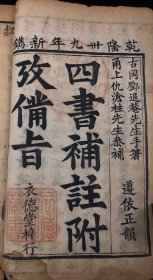 乾隆卅九年新鐫
古岡鄧退菴先生手著
甬上仇滄柱先生叅補
遵依正韻
四書補註附
攷備旨
衣德堂梓行